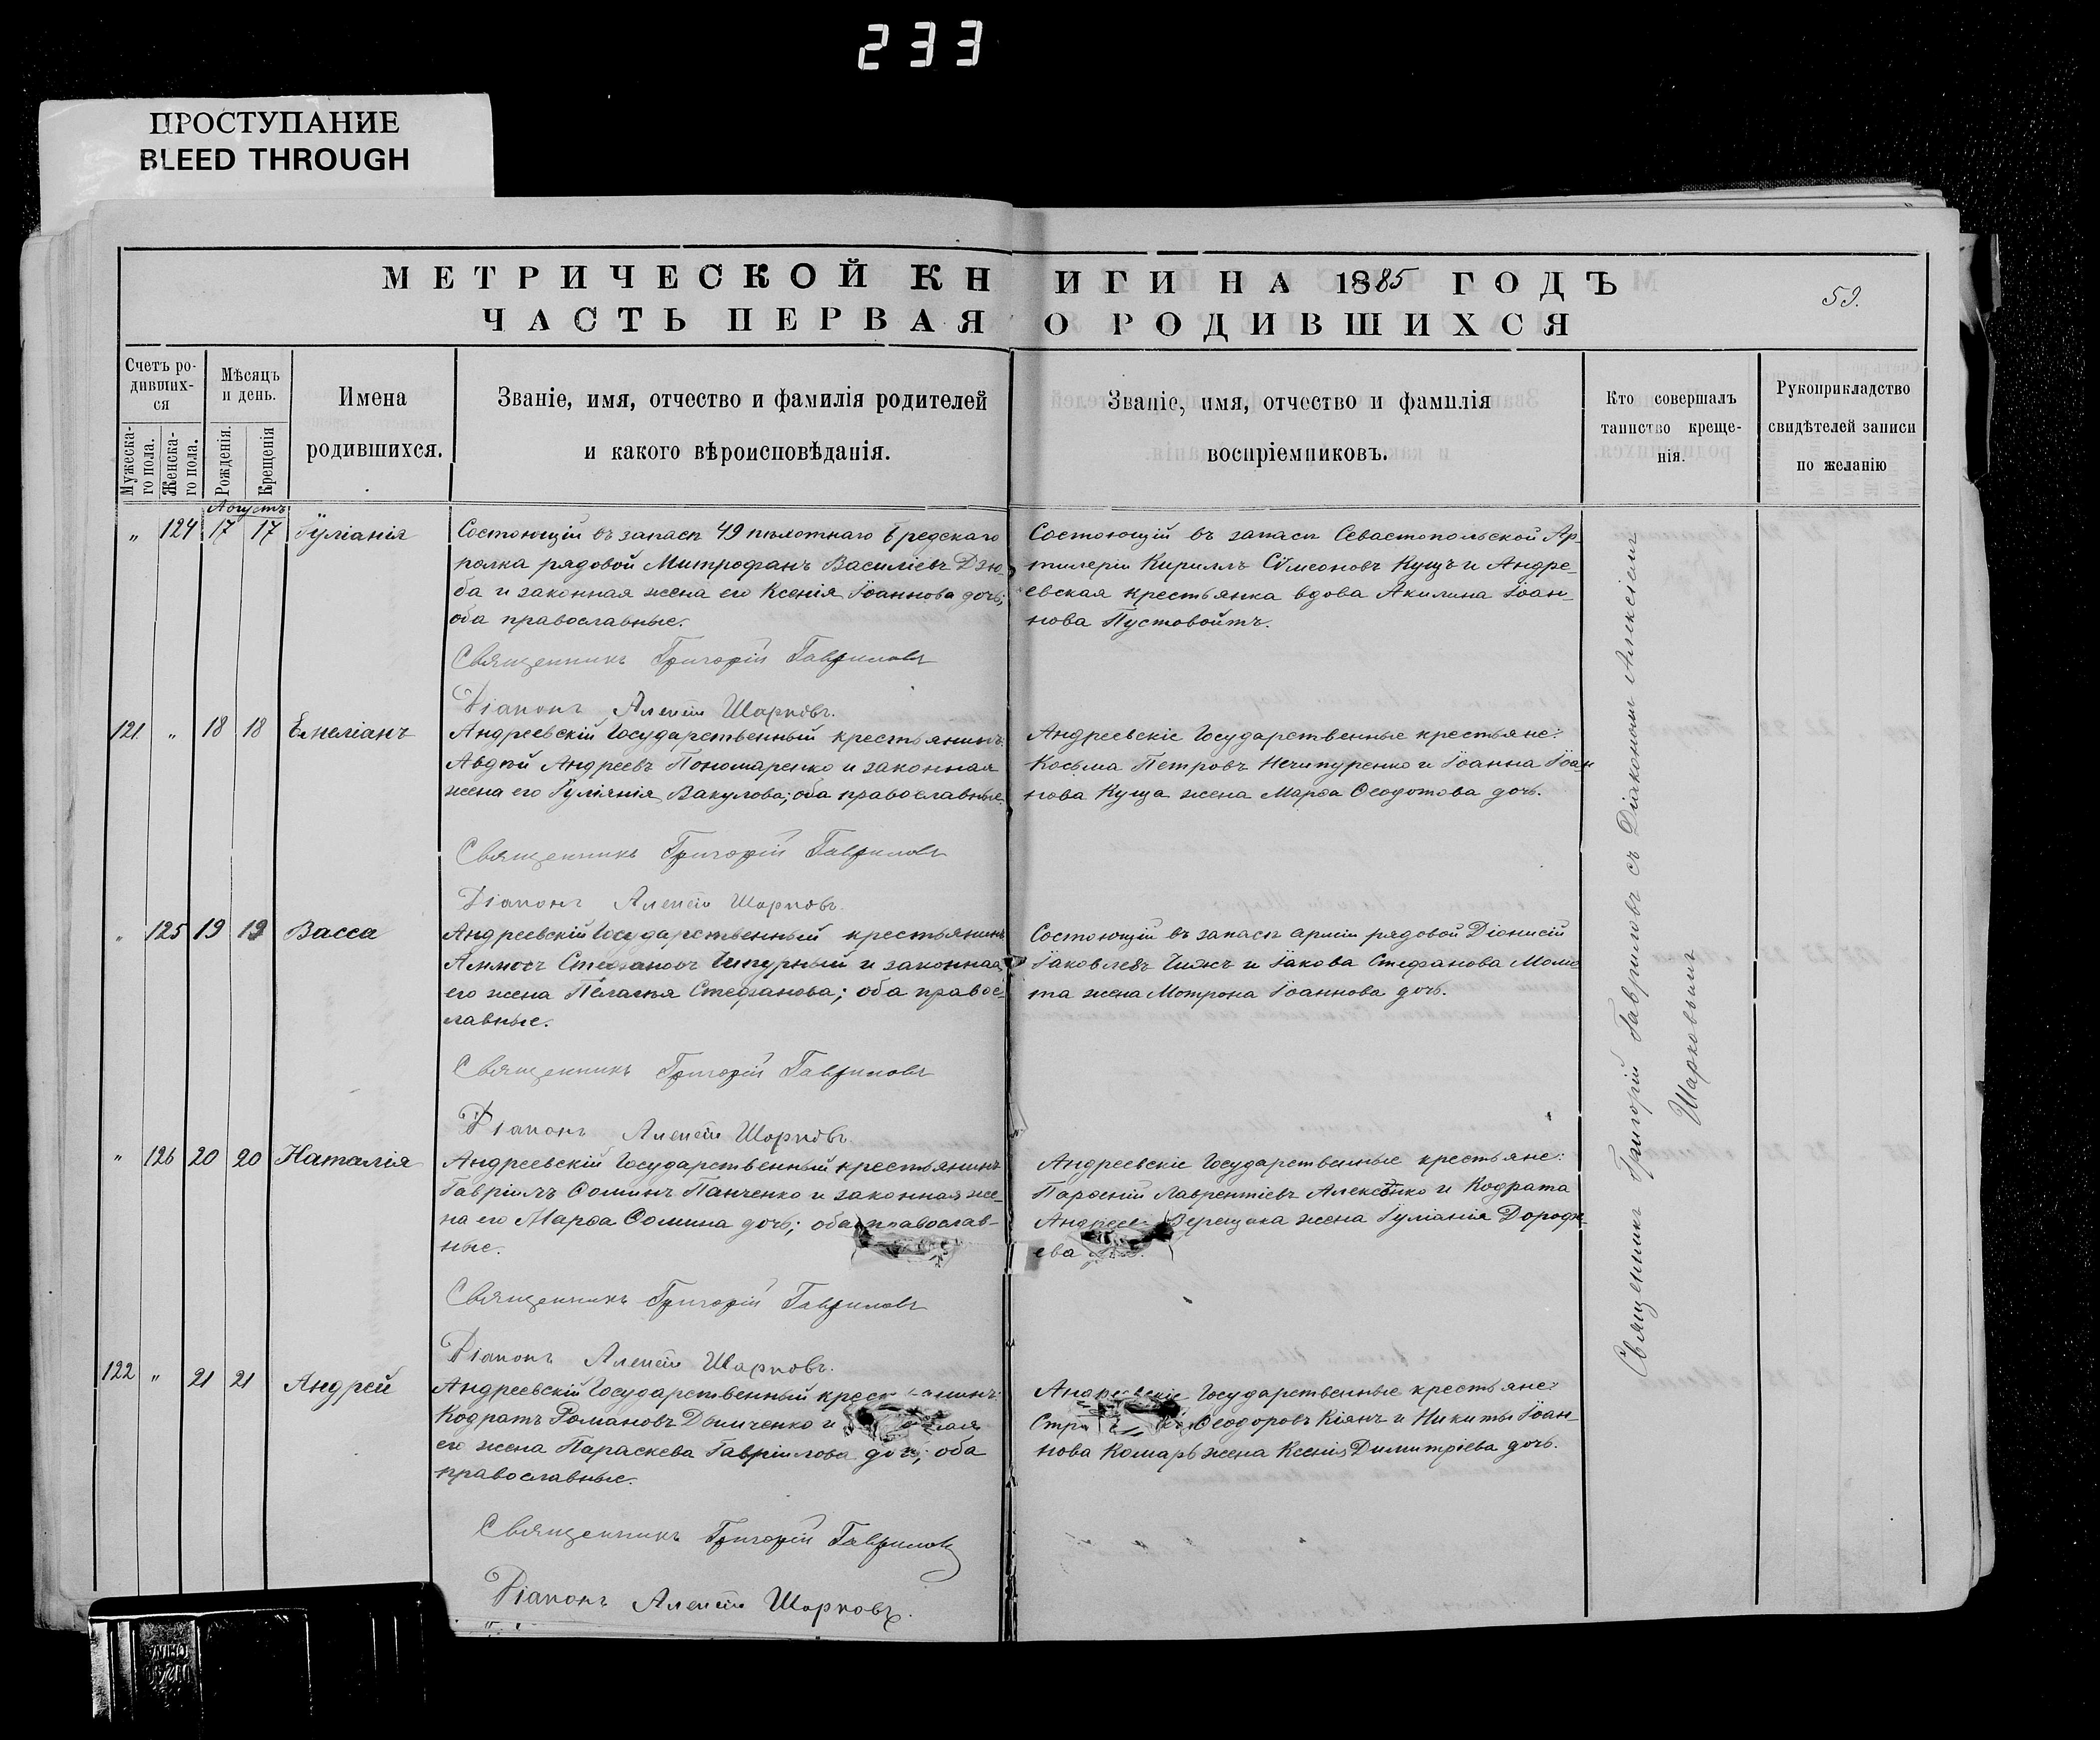 233
ПРОСТУПАНИЕ
BLEED THROUGH
МЕТРИЧЕСКОЙ КНИГИ НА 1885 ГОДЪ
59.
ЧАСТЬ ПЕРВАЯ О РОДИВШИХСЯ
Счетъ ро-
дивших-
ся
Мужеска-
го пола.
Женска-
го пола.
Мѣсяцъ
и день.
Рожденія.
Крещенія
Имена
родившихся.
Званіе, имя, отчество и фамилія родителей
и какого вѣроисповѣданія.
Званіе, имя, отчество и фамилія
воспріемниковъ.
Кто совершалъ
таинство креще-
нія.
Рукоприкладство
свидѣтелей записи
по желанію
Августъ
„ 124 17 17 Іуліанія
Состоящій въ запасѣ 49 пѣхотнаго Бредскаго
полка рядовой Митрофанъ Василіевъ Дзю-
ба и законная жена его Ксенія Іоаннова дочь;
оба православные.
Священникъ Григорій Гавриловъ
Діаконъ Алексій Шарковъ.
Состоющій въ запасѣ Севастопольской Ар-
тилеріи Кириллъ Сѵмеоновъ Кущъ и Андре-
евская крестьянка вдова Акилина Іоан-
нова Пустовойтъ.
121 „ 18 18 Емеліанъ
Андреевскій Государственный крестьянинъ
Авдѣй Андреевъ Пономаренко и законная
жена его Іуліянія Вакулова; оба православные.
Священникъ Григорій Гавриловъ
Діаконъ Алексій Шарковъ.
Андреевскіе Государственные крестьяне:
Косьма Петровъ Нечипуренко и Іоанна Іоан
нова Куща жена Марѳа Ѳеодотова дочь.
„ 125 19 19 Васса
Андреевскій Государственный крестьянинъ
Аммосъ Стефановъ Чепурный и законная
его жена Пелагія Стефанова; оба правос-
лавные.
Священникъ Григорій Гавриловъ
Діаконъ Алексій Шарковъ
Состоющій въ запасѣ арміи рядовой Діонисій
Іаковлевъ Чижъ и Іакова Стефанова Момо
та жена Мотрона Іоаннова дочь.
„ 126 20 20 Наталія
Андреевскій Государственный крестьянинъ
Гавріилъ Ѳоминъ Панченко и законная же-
на его Марѳа Ѳомина дочь; оба православ-
ные.
Священникъ Григорій Гавриловъ
Діаконъ Алексій Шарковъ.
Андреевскіе Государственные крестьяне:
Парѳеній Лаврентіевъ Алексѣнко и Кодрата
Верещака жена Іуліанія Дороф-
ева
122 „ 21 21 Андрей
Андреевскій Государственный
Кодратъ Романовъ Дымченко и
его жена Параскева Гавріилова дочь; оба
православные.
Священникъ Григорій Гавриловъ
Діаконъ Алексій Шарковъ.
Государственные крестьяне:
Ѳеодоровъ Кіянъ и Никиты Іоан-
нова Комаръ жена Ксенія Димитріева дочь.
Священникъ Григорій Гавриловъ съ Діакономъ Алексіемъ
Шарковымъ